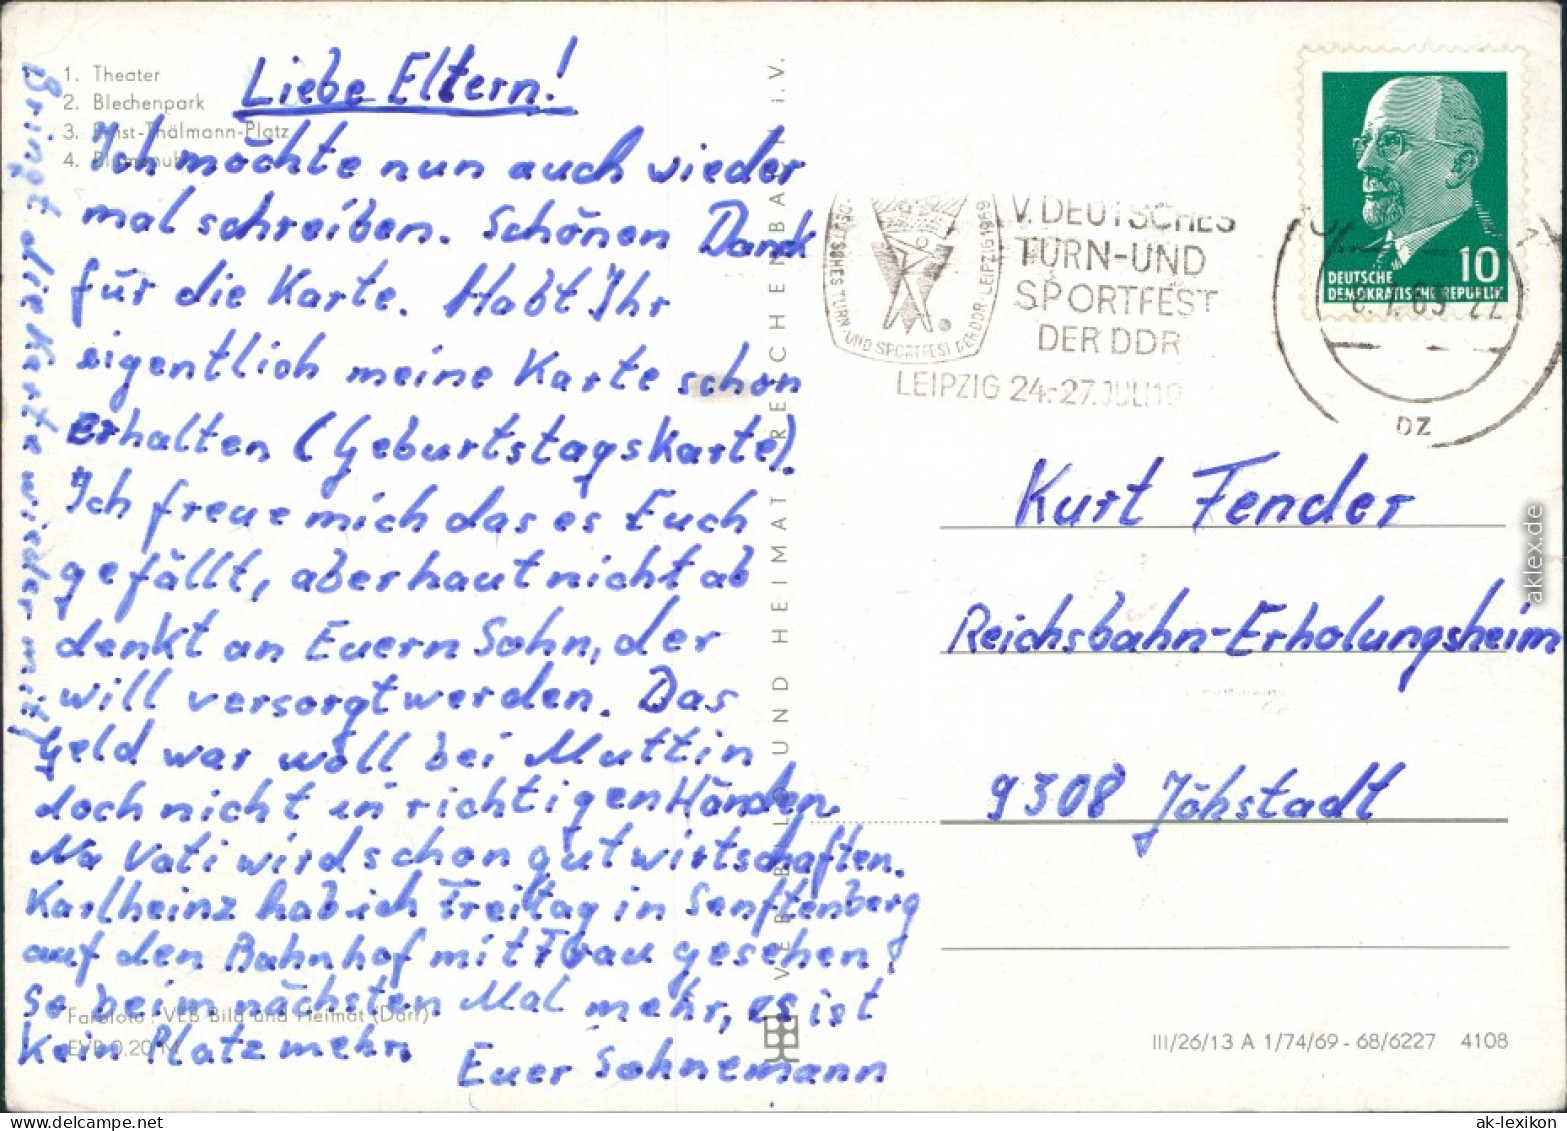 1. Theater
2. Blechenpark
3. Ernst-Thälmann-Platz
4.
Liebe Eltern!
Ich möchte nun auch wieder
mal schreiben. Schönen Dank
für die Karte. Habt Ihr
eigentlich meine Karte schon
erhalten (Geburtstagskarte).
Ich freue mich das es Euch
gefällt, aber haut nicht ab
denkt an Euern Sohn, der
will versorgt werden. Das
Geld war woll bei Muttin
doch nicht in richtigen Händen.
Na Vati wird schon gut wirtschaften.
Karlheinz hab ich Freitag in Senftenberg
auf den Bahnhof mit Frau gesehen!
So beim nächsten Mal mehr, es ist
kein Platz mehr.
Euer Sohnemann
Bringt die Karte wieder mit!
Farbfoto: VEB Bild und Heimat (Darr)
EVP 0,20 M
VEB BILD UND HEIMAT REICHENBACH i. V.
DEUTSCHES TURN- UND SPORTFEST DER DDR · LEIPZIG 1969
V. DEUTSCHES
TURN-UND
SPORTFEST
DER DDR
LEIPZIG 24.-27. JULI 19
DEUTSCHE
DEMOKRATISCHE REPUBLIK
10
DZ
Kurt Fender
Reichsbahn-Erholungsheim
9308 Jöhstadt
III/26/13 A 1/74/69 - 68/6227 4108
aklex.de
ak-lexikon